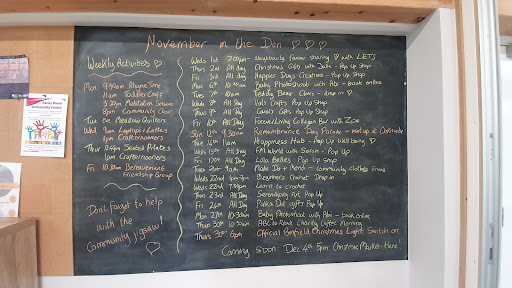 November in the Den ♡ ♡ ♡
Weekly Activities ♡
Mon 9:30am Rhyme Time
11am Toddler Craft
3.30pm Meditation Session
8pm Community Choir
Tue Meadow Quilters
Wed 9am Laptops + Lattes
1pm Crafternooners
Thur Seated Pilates
1pm Crafternooners
Fri 10.30am Bereavement
Friendship Group
Don't forget to help
with the
Community jigsaw!
♡
Weds 1st 7:00pm - Neighbourly favour sharing ♡ with LETS
Thurs 2nd All day Christmas Gifts with Julie - Pop Up Shop
Fri 3rd All day Happier Days Creations - Pop Up Shop
Mon 6th 10.30am Baby Photoshoot with Abi - book online
Tues 7th 10am Teddy Bear Clinic - drop in
Weds 8th All Day Val's Crafts Pop Up Shop
Thurs 9th All Day Carol's Gifts Pop Up Shop
Fri 10th All Day Forever Living Collagen Bar with Zoe
Sun 12th 9.30am Remembrance Day Parade - meet up at Coleridge
Tue 14th 11am Happiness Hub - Pop Up Wellbeing ♡
Weds 15th All Day FM World with Sarah - Pop Up
Fri 17th All day Lola Belles Pop Up Shop
Tues 21st 9am Make Do + Mend - community clothes
Weds 22nd 1pm-3pm Beginners Crochet Drop in
Weds 22nd 7.30pm Learn to crochet
Thurs 23rd All Day Serendipity Art Pop Up
Fri 24th All day Polka Dot Gifts Pop Up
Mon 27th 10.30am Baby Photoshoot with Abi - book online
Thurs 30th 10.30am ABC to Read Charity Coffee Morning
Thurs 30th 6pm Official Binfield Christmas Light Switch on
Coming soon: Dec 4th 5pm Christmas Market - Here!